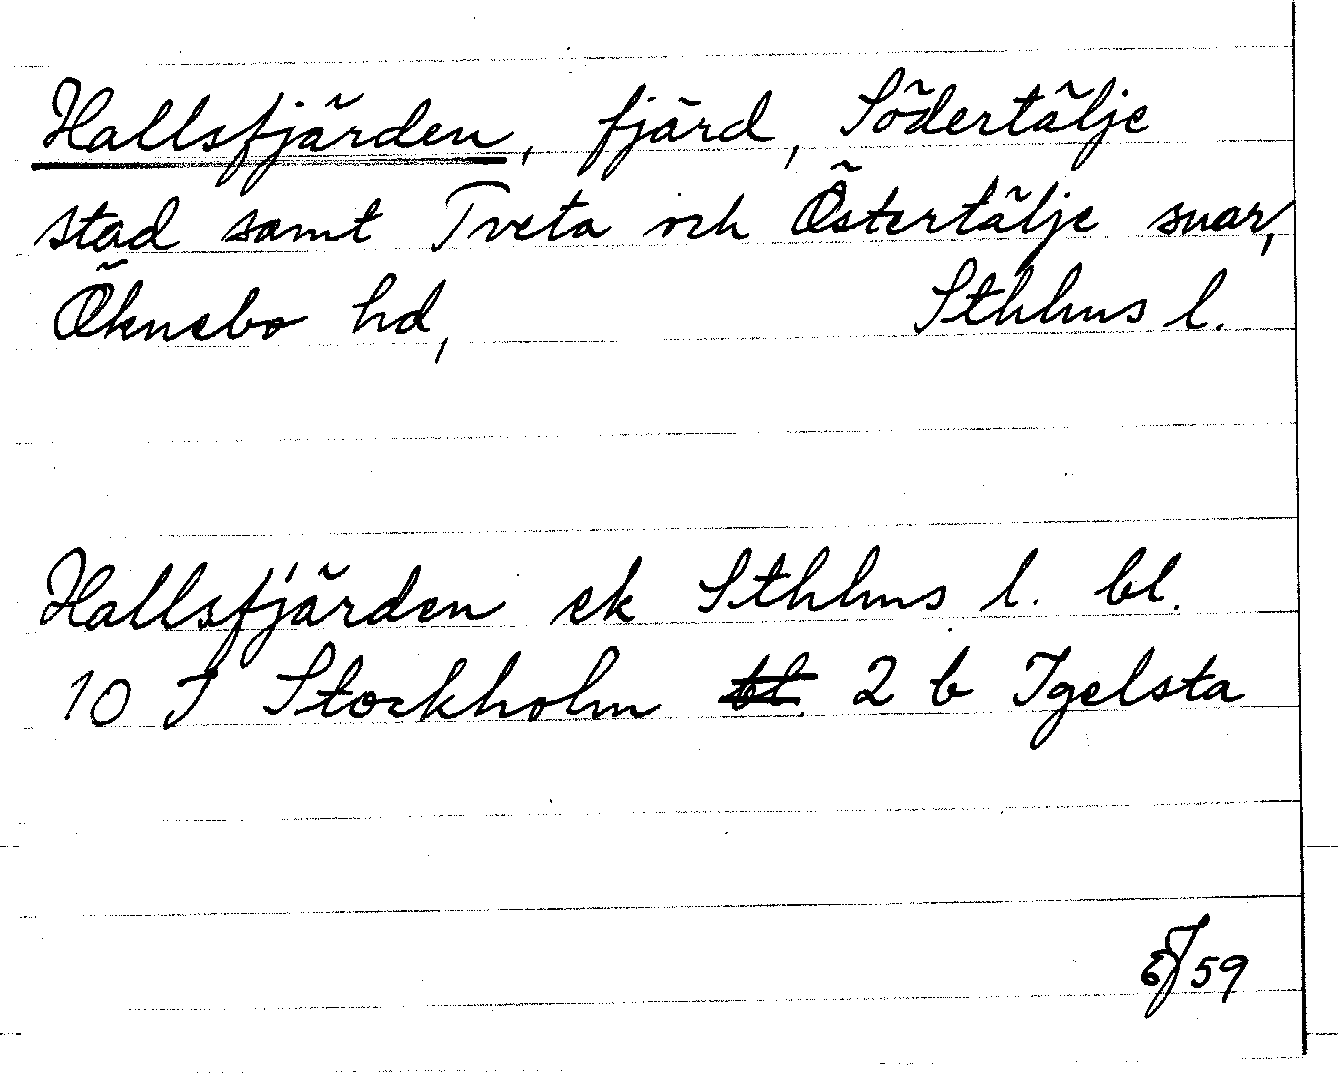 Hallsfjärden, fjärd, Södertälje
stad samt Tveta och Östertälje snar,
Öknebo hd, Sthlms l.
Hallsfjärden ek Sthlms l. bl.
10 J Stockholm bl. 2 b Igelsta
59